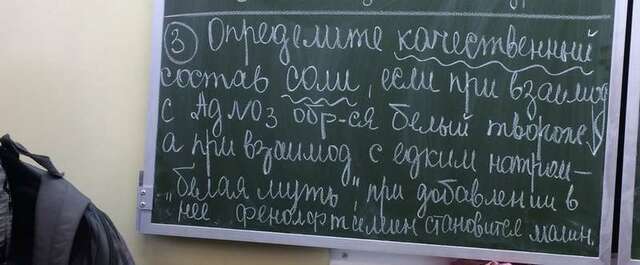 ③ Определите качественный
состав соли, если при взаимод
с AgNO3 обр-ся белый творож
а при взаимод с едким натром-
"белая муть", при добавлении в
нее фенолфталеин становится малин.